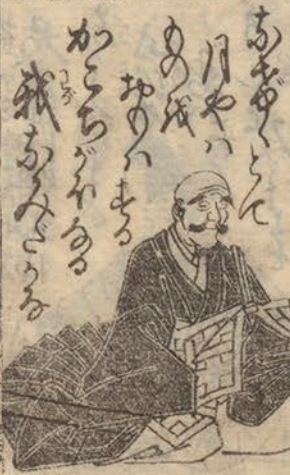 なげけとて
月やハ
ものを
おもハする
かこちがほなる
我なみだかな
わが